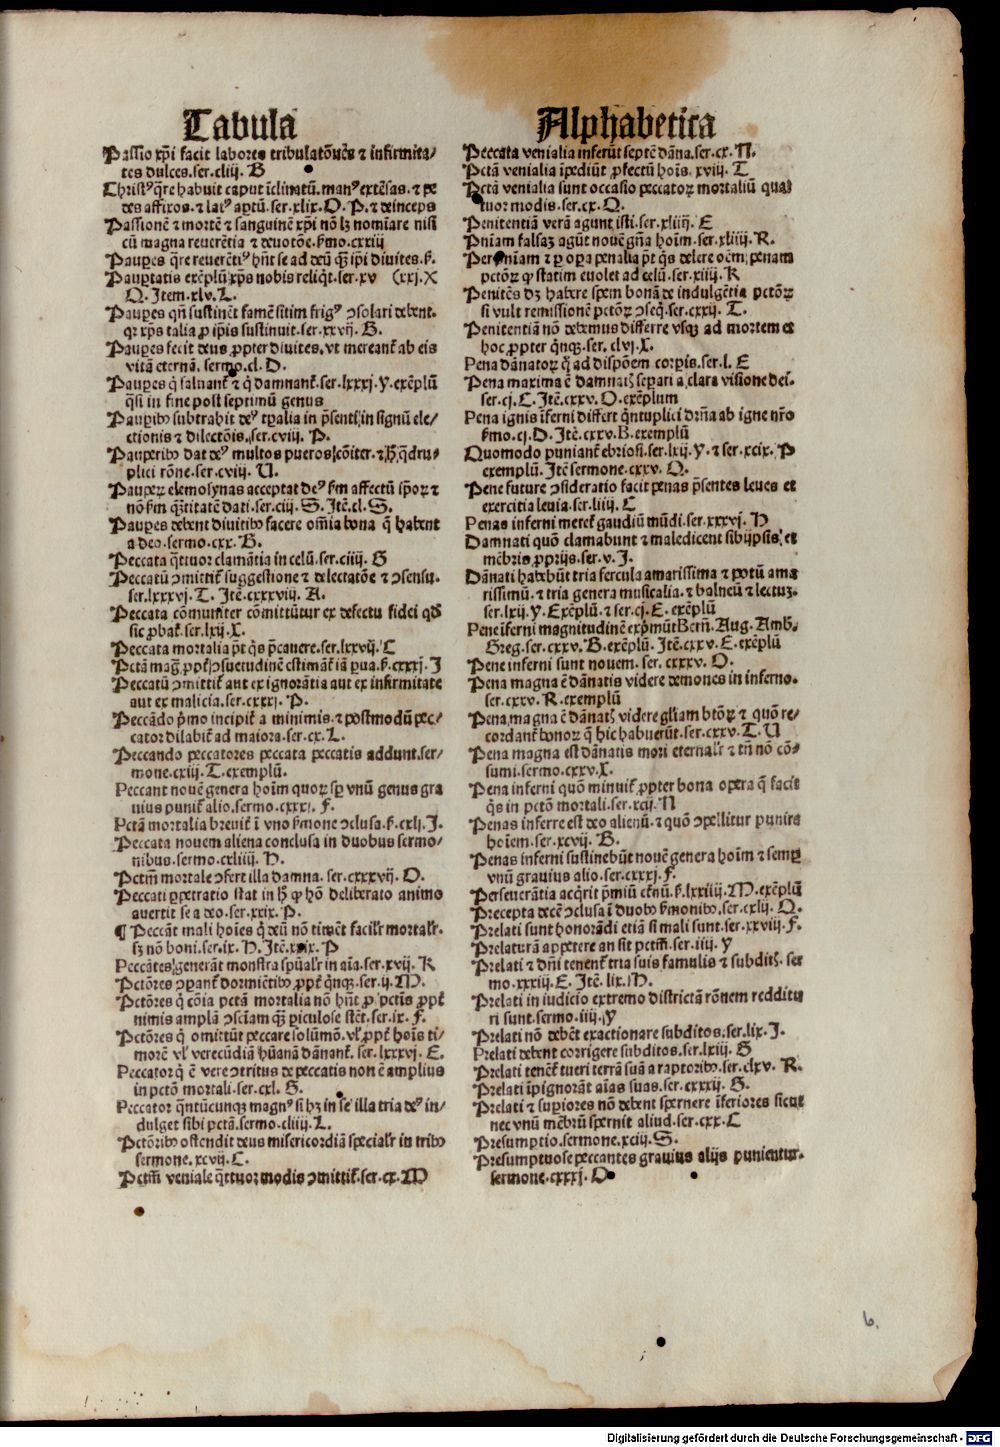 Tabula
Passio xp̄i facit labores tribulatōnes ⁊ infirmita⸗
tes dulces.ser.cliij. B
Christꝰ q̄re habuit caput īclinatū.manꝰ extēsas.⁊ pe
des affixos.⁊ latꝰ aꝑtū.ser.xlix.O.P.⁊ deinceps
Passionē ⁊ mortē ⁊ sanguinē xp̄i nō lꝫ nomīare nisi
cū magna reuerētia ⁊ deuotōe.ẜmo.cxxiij
Pauꝑes q̄re reuerētiꝰ hn̄t se ad deū qꝫ ip̄i diuites.ẜ.
Pauꝑtatis exēplū xp̄s nobis reliq̄t.ser.xv (xxj.X
Q. Item.xlv.L.
Pauꝑes qn̄ sustinēt famē sitim frigꝰ ꝯsolari debent.
qr xp̄s talia ꝓ ip̄is sustinuit.ser.xxvij. G.
Pauꝑes fecit deus ꝓpter diuites.vt mereant̄ ab eis
vitā eternā. sermo.cl. D.
Pauꝑes q̇ saluant̄ ⁊ q̇ damnant̄.ser.lxxxj.y.exēplū
q̄si in fine post septimū genus
Pauꝑibꝰ subtrahit deꝰ tꝑalia in p̄senti,in signū ele⸗
ctionis ⁊ dilectōis.ser.cviij. P.
Pauꝑeribꝰ dat deꝰ multos pueros cōiter.⁊ h̄ q̄dru⸗
plici rōne.ser.cviij. U.
Pauꝑeꝝ elemosynas acceptat deꝰ ẜm affectū ip̄oꝝ ⁊
nō ẜm q̄ntitatē dati.ser.ciij. S. Itē.cl.S.
Pauꝑes debent diuitibꝰ facere om̄ia bona q̄ habent
a deo.sermo.cxx. B.
Peccata q̄ttuor clamātia in celū.ser.ciiij. G
Peccatū ꝯmittit̄ suggestione ⁊ delectatōe ⁊ ꝯsensu.
ser.lxxxvj. T. Itē.cxxxviij. A.
Peccata cōmuniter cōmittūtur ex defectu fidei qd̄
sic ꝓbat̄.ser.lxij.X.
Peccata mortalia p̄t q̇s p̄cauere.ser.lxxvij. C
Pctā maḡ ꝓpt̄ ꝯsuetudinē estimāt̄ iā ꝑua.ẜ.cxxxj.I
Peccatū ꝯmittit̄ aut ex ignorātia aut ex infirmitate
aut ex malicia.ser.cxxxj. P.
Peccādo p̄mo incipit̄ a minimis.⁊ postmodū pec⸗
cator dilabit̄ ad maiora.ser.cx.L.
Peccando peccatores peccata peccatis addunt.ser⸗
mone.cxiij.T.exemplū.
Peccant nouē genera hoīm quoꝝ sꝑ vnū genus gra
uius punit̄ alio.sermo.cxxxj. F.
Pctā mortalia breuit̄ ī vno ẜmone ꝯclusa.ẜ.cxlj.I.
Peccata nouem aliena conclusa in duobus sermo⸗
nibus.sermo.cxliiij. H.
Pctm̄ mortale ꝯfert illa damna. ser.cxxxvij. O.
Peccati ꝑpetratio stat in h̄ ꝙ hō deliberato animo
auertit se a deo.ser.xxix. P.
¶ Peccāt mali hoīes q̇ deū nō timēt facilr̄ mortalr̄.
sꝫ nō boni.ser.ix. H. Itē.xxix. P
Peccātes generāt monstra sp̄ualr̄ in aīa.ser.xvij. K
Pctōres ꝯꝑant̄ dormiētibꝰ ꝓpt̄ q̄nqꝫ.ser.ij.M.
Pctōres q̇ cōia pctā mortalia nō hn̄t ꝓ pctis ꝓpt̄
nimis amplā ꝯsciam qꝫ ꝑiculose stēt.ser.ix. F.
Pctōres q̇ omittūt peccare solūmō.vl̄ ꝓpt̄ hoīs ti⸗
morē vl̄ verecūdiā hūanā dānant̄. ser.lxxxvj. E.
Peccator q̇ ē vere ꝯtritus de peccatis non ē amplius
in pctō mortali.ser.cxl. G.
Peccator q̄ntūcunqꝫ magnꝰ si hꝫ in se illa tria deꝰ in⸗
dulget sibi pctā.sermo.cliiij.L.
Pctōribꝰ ostendit deus misericordiā specialr̄ in tribꝰ
sermone.xcvij. C.
Pctm̄ veniale q̄ttuor modis ꝯmittit̄.ser.cx.M
Alphabetica
Peccata venialia inferūt septē dāna.ser.cx.N.
Pctā venialia īpediūt ꝓfectū hoīs.xviij. T
Pctā venialia sunt occasio peccatoꝝ mortaliū quat
tuor modis.ser.cx.Q.
Penitentiā verā agunt isti.ser.xliiij. E
Pn̄iam falsaꝫ agūt nouē gn̄a hoīm.ser.xliiij.R.
Per pn̄iam ⁊ ꝑ oꝑa penalia p̄t q̇s delere oēm penam
pctōꝝ ꝙ statim euolet ad celū.ser.xiiij.K
Penitēs dꝫ habere spem bonā de indulgētia pctōꝝ
si vult remissionē pctōꝝ ꝯseq̄.ser.cxxij. T.
Penitentiā nō debemus differre vsqꝫ ad mortem et
hoc ꝓpter q̄nqꝫ.ser. clvj.X.
Pena dānatoꝝ q̄ ad dispōem corꝑis.ser.l. E
Pena maxima ē damnatꝭ seꝑari a clara visione dei.
ser.cj.C. Itē.cxxv. O.exemplum
Pena ignis īferni differt q̄ntuplici dr̄n̄a ab igne nr̄o
ẜmo.cj.D. Itē.cxxv.B.exemplū
Quomodo puniant̄ ebriosi.ser.lxij.y.⁊ ser.xcix. P
exemplū. Itē sermone.cxxv. Q.
Pene future ꝯsideratio facit penas p̄sentes leues et
exercitia leuia.ser.liiij. C
Penas inferni meret̄ gaudiū mūdi.ser.xxxvj. H
Damnati quō clamabunt ⁊ maledicent sibijpsis et
mēbris ꝓprijs.ser.v. I.
Dānati habebūt tria fercula amarissima ⁊ potū ama
rissimū.⁊ tria genera musicalia.⁊ balneū ⁊ lectuꝫ.
ser.lxij.y.Exēplū.⁊ ser.cj.E. exēplū
Pene īferni magnitudinē exp̄mūt Bern̄.Aug.Amb̄.
Greg.ser.cxxv.B.exēplū. Itē.cxxv.E.exēplū
Pene inferni sunt nouem. ser. cxxxv. O.
Pena magna ē dānatis videre demones in inferno.
ser.cxxv.R.exemplū
Pena magna ē dānatꝭ videre gl̄iam btōꝝ ⁊ quō re⸗
cordant̄ bonoꝝ q̄ hic habuerūt.ser.cxxv.T.U
Pena magna est dānatis mori eternalr̄ ⁊ tn̄ nō cō⸗
sumi.sermo.cxxv.X.
Pena inferni quō minuit̄ ꝓpter bona opera q̄ facit
q̇s in pctō mortali.ser.xcij.N
Penas inferre est deo alienū.⁊ quō ꝯpellitur punire
hoīem.ser.xcvij. B.
Penas inferni sustinebūt nouē genera hoīm ⁊ semꝑ
vnū grauius alio.ser.cxxxj.F.
Perseuerātia acq̄rit p̄miū et̄nū.ẜ.lxxiiij.M.exēplū
Precepta decē ꝯclusa ī duobꝰ ẜmonibꝰ.ser.cxlij. Q.
Prelati sunt honorādi etiā si mali sunt.ser.xxviij.F.
Prelaturā appetere an sit pctm̄.ser.iiij.y
Prelati ⁊ dn̄i tenent̄ tria suis famulis ⁊ subditꝭ. ser
mo.xxxiij.E. Itē.lix.H.
Prelati in iudicio extremo districtā rōnem redditu
ri sunt.sermo.iiij.y
Prelati nō debēt exactionare subditos.ser.lix.I.
Prelati debent corrigere subditos.ser.lxiij. G
Prelati tenent̄ tueri terrā suā a raptoribꝰ.ser.clxv. R.
Prelati īpignorāt aīas suas.ser.cxxxij. G.
Prelati ⁊ suꝑiores nō debent spernere īferiores sicut
nec vnū mēbrū spernit aliud.ser.cxx.C
Presumptio.sermone.xciij.S.
Presumptuose peccantes grauius alijs punientur.
sermone.cxxxj. O
6.
Digitalisierung gefördert durch die Deutsche Forschungsgemeinschaft - DFG